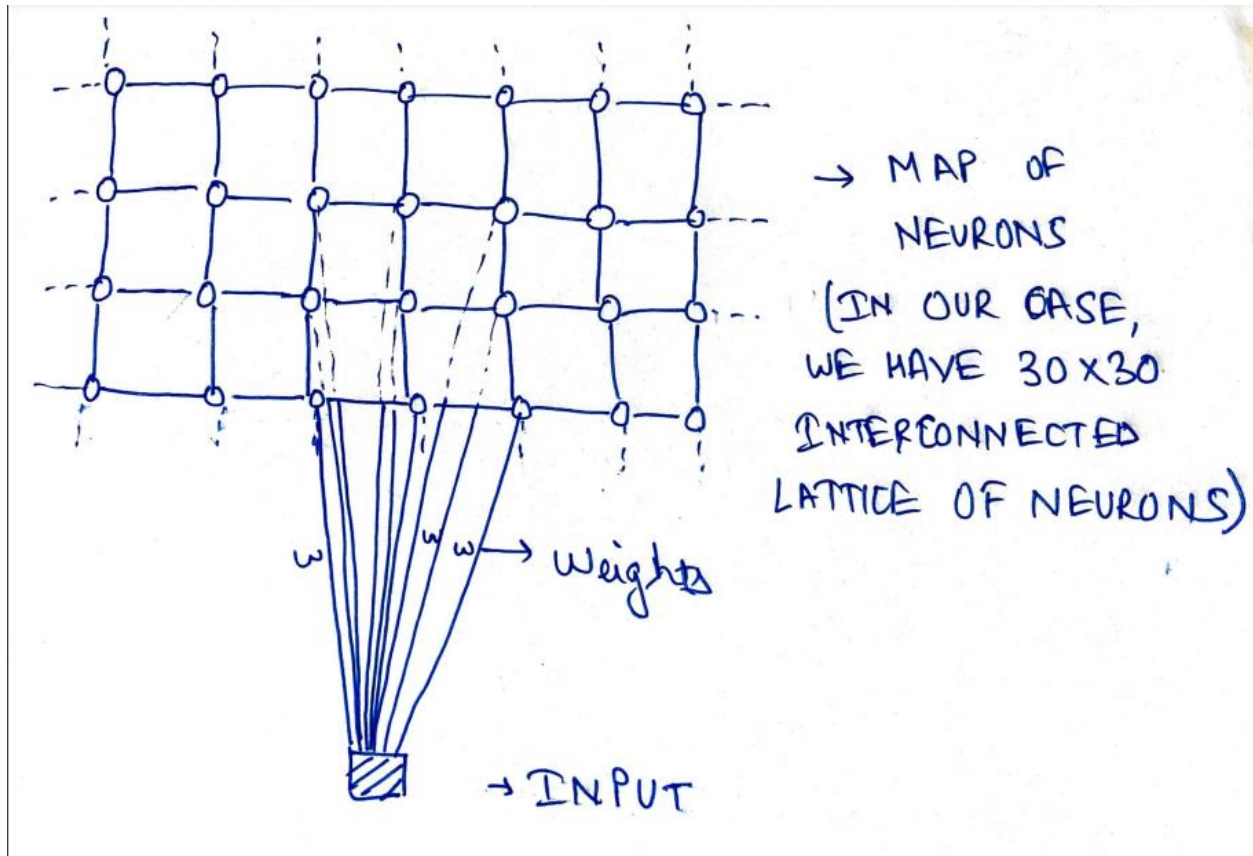 → MAP OF
NEURONS
(IN OUR CASE,
WE HAVE 30X30
INTERCONNECTED
LATTICE OF NEURONS)
ω
ω
ω → Weights
→ INPUT